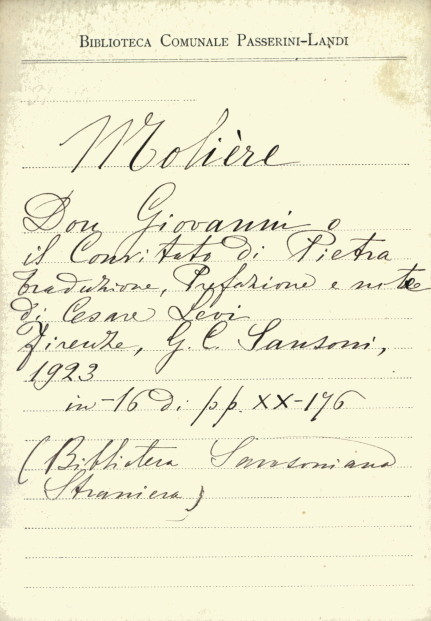 BIBLIOTECA COMUNALE PASSERINI-LANDI
Molière
Don Giovanni o
il Convitato di Pietra
traduzione, Prefazione e note
di Cesare Levi
Firenze, G. C. Sansoni,
1923
in-16 di pp. XX-176
(Biblioteca Sansoniana
Straniera)